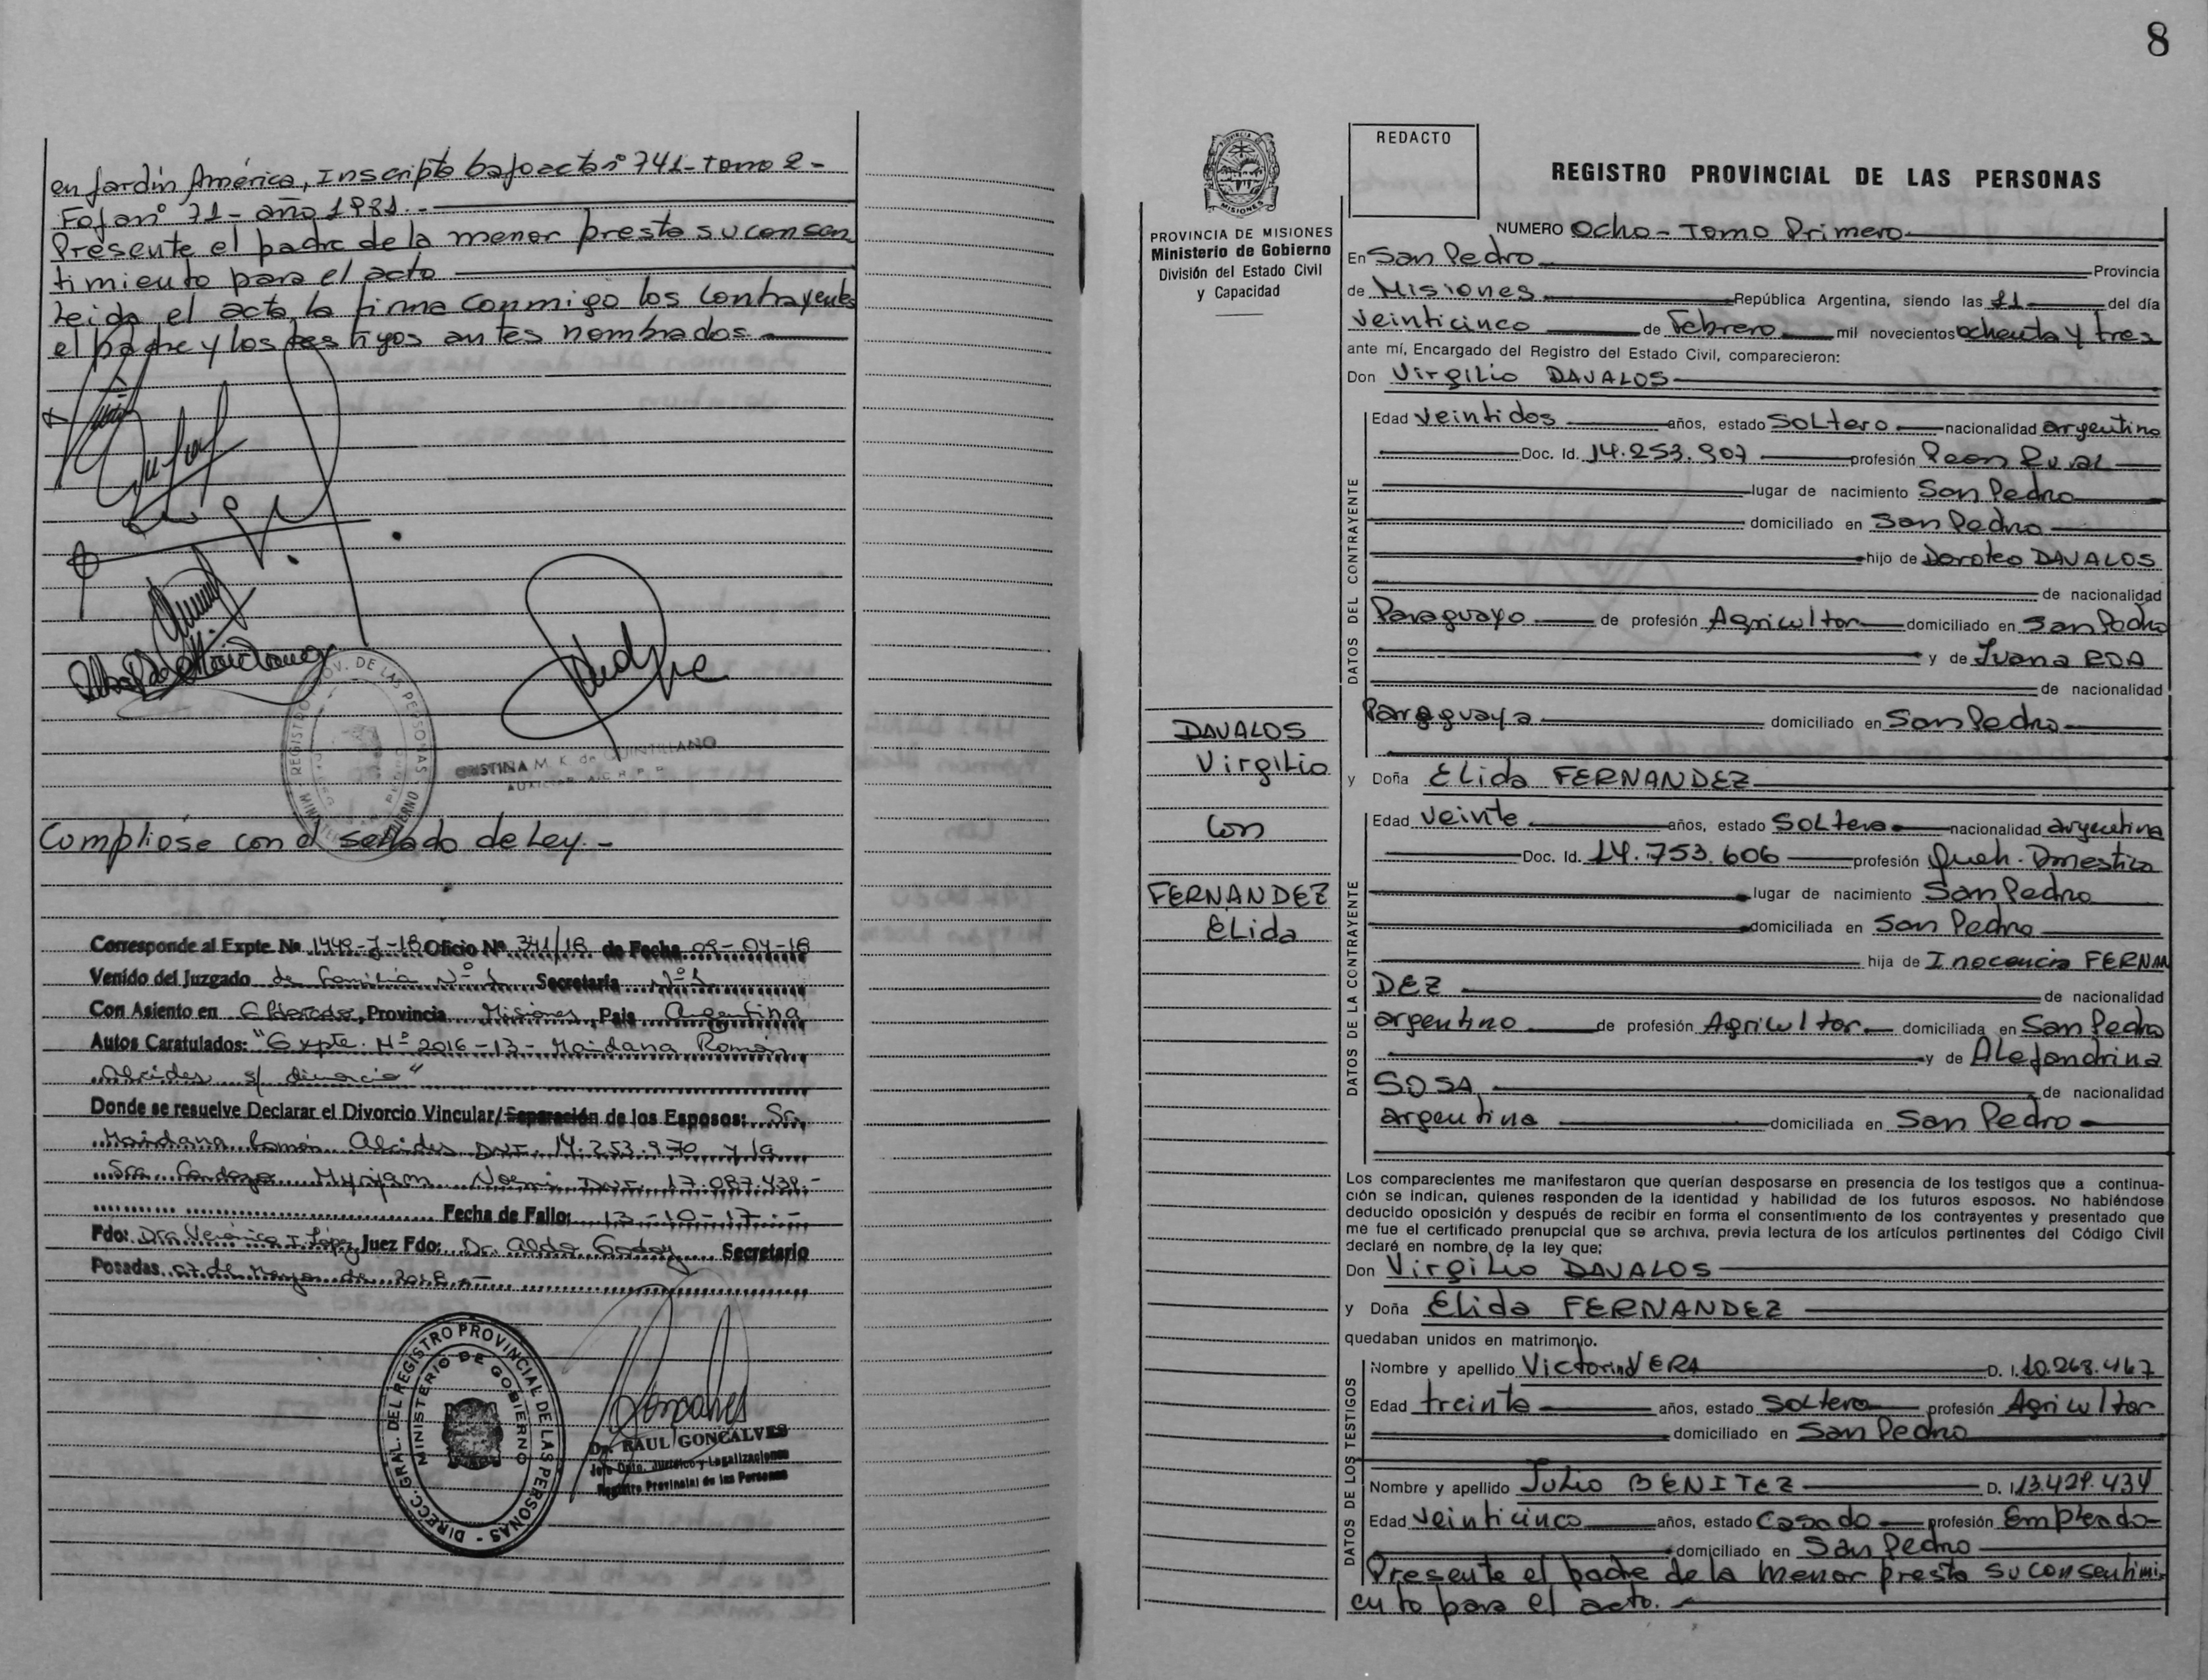 en Jardín América, Inscripto bajo acta nº 741-Tomo 2-
Foja nº 71- año 1981.-
Presente el padre de la menor presta su consen
timiento para el acto
Leida el acta, la firma conmigo los contrayentes
el padre y los testigos antes nombrados.
REGISTRO PROV. DE LAS PERSONAS
CRISTINA M. K. de QUINTILLANO
Cumpliose con el sellado de Ley.-
Corresponde al Expte. Nº 1449-J-18 Oficio Nº 341/18 de Fecha 09-04-18
Venido del Juzgado de Familia Nº 1 Secretaría Nº 1
Con Asiento en Eldorado, Provincia Misiones, País Argentina
Autos Caratulados: "Expte. Nº 2016-13- Maidana Román
Alcides s/ divorcio"
Donde se resuelve Declarar el Divorcio Vincular/Separación de los Esposos: Sr.
Maidana Román Alcides DNI. 14.253.970 y la
Sra. Cardozo Myriam Noemi DNI. 17.087.438.-
Fecha de Fallo: 13-10-17.-
Fdo: Dra Verónica I. López Juez Fdo: Dr. Aldo Godoy Secretario
Posadas, 07 de Mayo de 2018.-
DIRECC. GRAL. DEL REGISTRO PROVINCIAL DE LAS PERSONAS
MINISTERIO DE GOBIERNO
Dr. RAUL GONCALVES
Jefe Dpto. Jurídico y Legalizaciones
Registro Provincial de las Personas
8
PROVINCIA DE MISIONES
Ministerio de Gobierno
División del Estado Civil
y Capacidad
DAVALOS
Virgilio
Con
FERNANDEZ
Elida
REDACTO
REGISTRO PROVINCIAL DE LAS PERSONAS
NUMERO Ocho - Tomo Primero
En San Pedro Provincia
de Misiones República Argentina, siendo las 11 del día
veinticinco de Febrero mil novecientos ochenta y tres
ante mí, Encargado del Registro del Estado Civil, comparecieron:
Don Virgilio DAVALOS
DATOS DEL CONTRAYENTE
Edad veintidos años, estado Soltero nacionalidad argentino
Doc. Id. 14.253.907 profesión Peon Rural
lugar de nacimiento San Pedro
domiciliado en San Pedro
hijo de Doroteo DAVALOS
de nacionalidad
Paraguayo de profesión Agricultor domiciliado en San Pedro
y de Juana ROA
de nacionalidad
Paraguaya domiciliado en San Pedro
y Doña Elida FERNANDEZ
DATOS DE LA CONTRAYENTE
Edad veinte años, estado Soltera nacionalidad argentina
Doc. Id. 14.753.606 profesión Queh. Domestica
lugar de nacimiento San Pedro
domiciliada en San Pedro
hija de Inocencia FERNAN
DEZ de nacionalidad
argentino de profesión Agricultor domiciliada en San Pedro
y de Alejandrina
SOSA de nacionalidad
argentina domiciliada en San Pedro
Los comparecientes me manifestaron que querían desposarse en presencia de los testigos que a continua-
ción se indican, quienes responden de la identidad y habilidad de los futuros esposos. No habiéndose
deducido oposición y después de recibir en forma el consentimiento de los contrayentes y presentado que
me fue el certificado prenupcial que se archiva, previa lectura de los artículos pertinentes del Código Civil
declaré en nombre de la ley que;
Don Virgilio DAVALOS
y Doña Elida FERNANDEZ
quedaban unidos en matrimonio.
DATOS DE LOS TESTIGOS
Nombre y apellido Victorino VERA D. I. 10.268.467
Edad treinta años, estado Soltero profesión Agricultor
domiciliado en San Pedro
Nombre y apellido Julio BENITEZ D. I. 13.429.434
Edad veinticinco años, estado Casado profesión Empleado
domiciliado en San Pedro
Presente el padre de la menor presta su consentimi
ento para el acto.